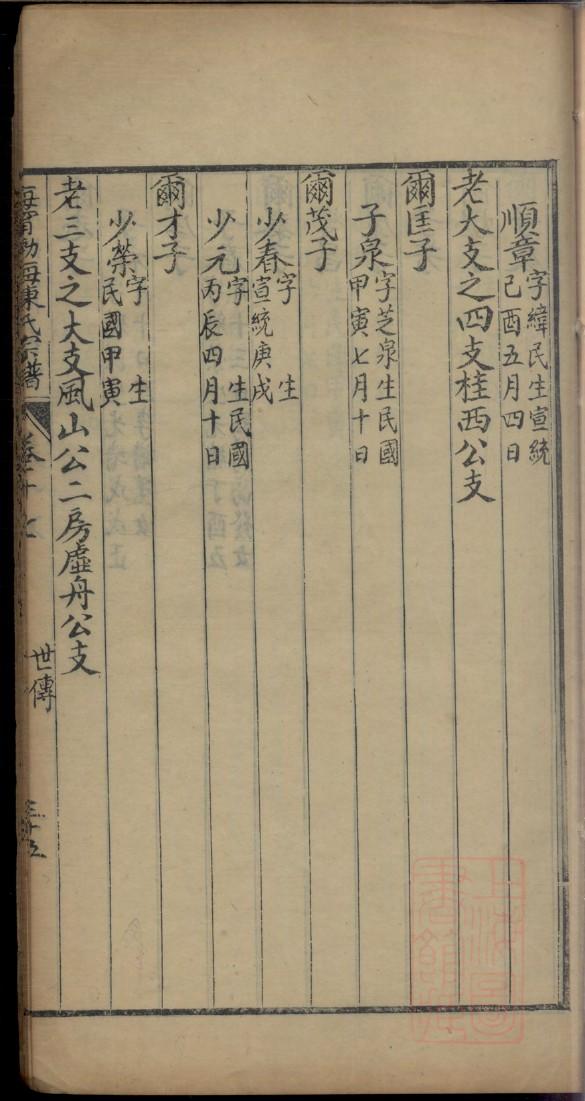 順章字緯民生宣統己酉五月四日
老大支之四支桂西公支
爾匡子
子泉字芝泉生民國甲寅七月十日
爾茂子
少春字 生宣統庚戌
少元字 生民國丙辰四月十日
爾才子
少榮字 生民國甲寅
老三支之大支風山公二房虛舟公支
海陳氏宗譜 卷十 世傳 三十五
上海圖書館藏